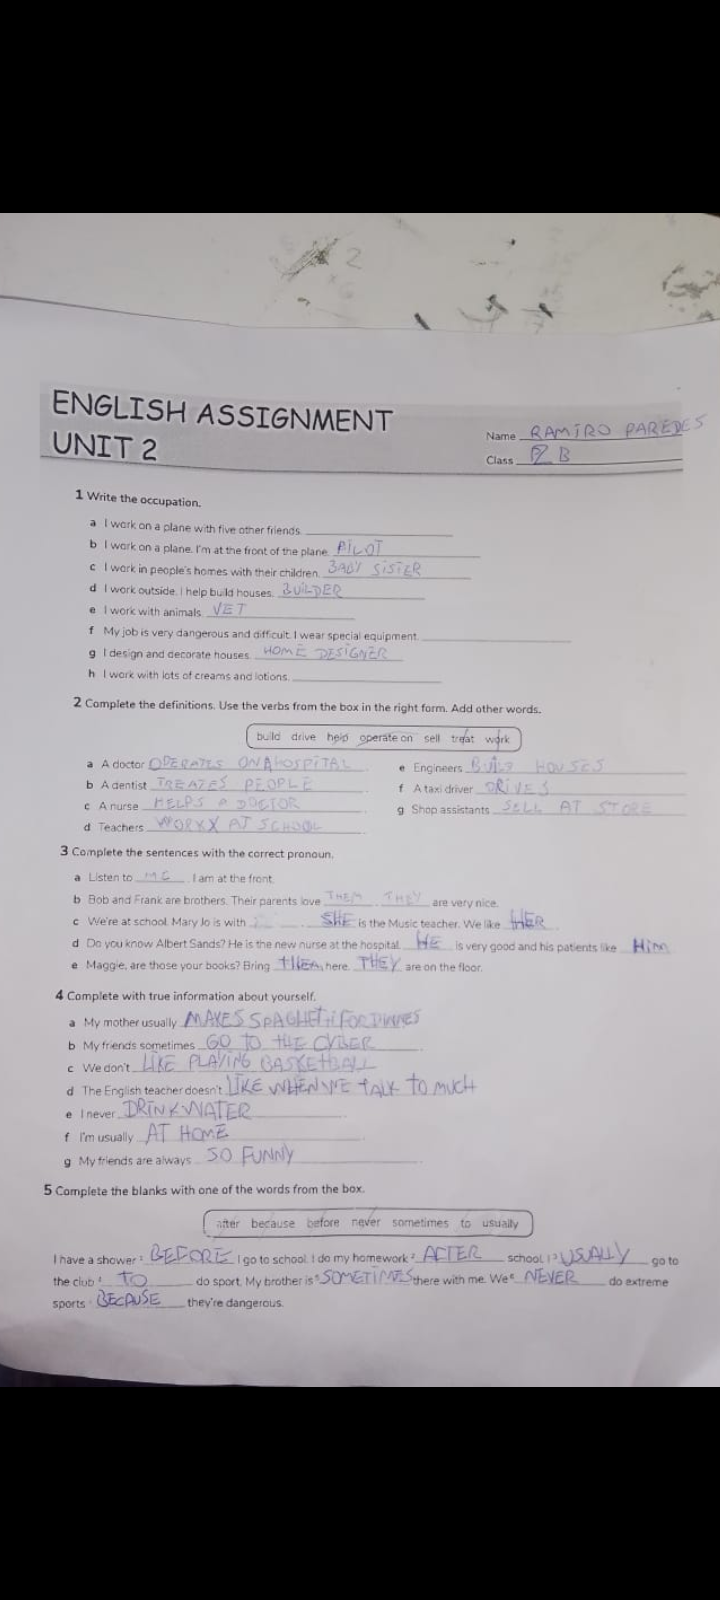 ENGLISH ASSIGNMENT
UNIT 2
Name RAMIRO PAREDES
Class B
1 Write the occupation.
a I work on a plane with five other friends.
b I work on a plane. I'm at the front of the plane. PILOT
c I work in people's homes with their children. BABY SISTER
d I work outside. I help build houses. BUILDER
e I work with animals. VET
f My job is very dangerous and difficult. I wear special equipment.
g I design and decorate houses. HOME DESIGNER
h I work with lots of creams and lotions.
2 Complete the definitions. Use the verbs from the box in the right form. Add other words.
build drive help operate on sell treat work
a A doctor OPERATES ON A HOSPITAL
b A dentist TREATES PEOPLE
c A nurse HELPS A DOCTOR
d Teachers WORK AT SCHOOL
e Engineers BUILD HOUSES
f A taxi driver DRIVES
g Shop assistants SELL AT STORE
3 Complete the sentences with the correct pronoun.
a Listen to ME. I am at the front.
b Bob and Frank are brothers. Their parents love THEM. THEY are very nice.
c We're at school. Mary Jo is with . SHE is the Music teacher. We like HER.
d Do you know Albert Sands? He is the new nurse at the hospital. HE is very good and his patients like HIM
e Maggie, are those your books? Bring here. THEY are on the floor.
4 Complete with true information about yourself.
a My mother usually MAKES SPAGHETTI FOR
b My friends sometimes GO TO THE CYBER
c We don't LIKE PLAYING BASKETBALL
d The English teacher doesn't LIKE WHEN WE TALK TO MUCH
e I never DRINK WATER
f I'm usually AT HOME
g My friends are always SO FUNNY
5 Complete the blanks with one of the words from the box.
after because before never sometimes to usually
I have a shower 1 BEFORE I go to school. I do my homework 2 AFTER school. I 3 USUALLY go to
the club 4 TO do sport. My brother is 5 SOMETIMES there with me. We 6 NEVER do extreme
sports 7 BECAUSE they're dangerous.